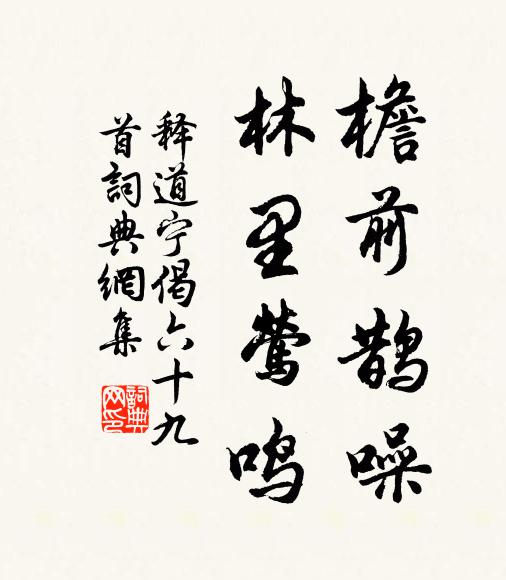 檐前鹊噪
林里莺鸣
释道宁偈六十九
首詞典網集
詞典
网印